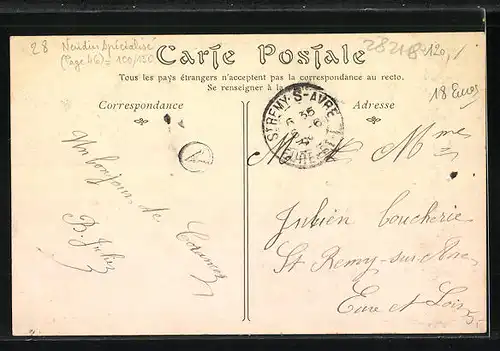 28
(Page 46) = 100/150
28218-120,/
Carte Postale
Tous les pays étrangers n'acceptent pas la correspondance au recto.
Se renseigner à la
Correspondance
Adresse
18 Euros
ST REMY-S-AVRE
M. & Mmes
Un bonjour de
B. Juliez
Julien boucherie
St Remy-sur-Avre
Eure et Loir